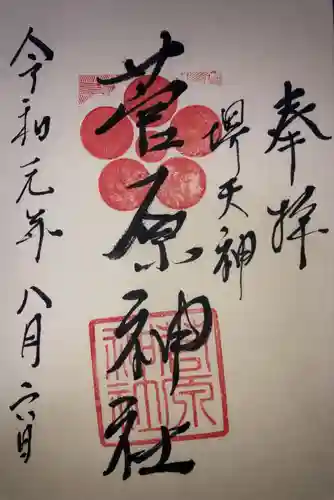 奉拝
堺天神
菅原神社
令和元年八月六日
菅原神社